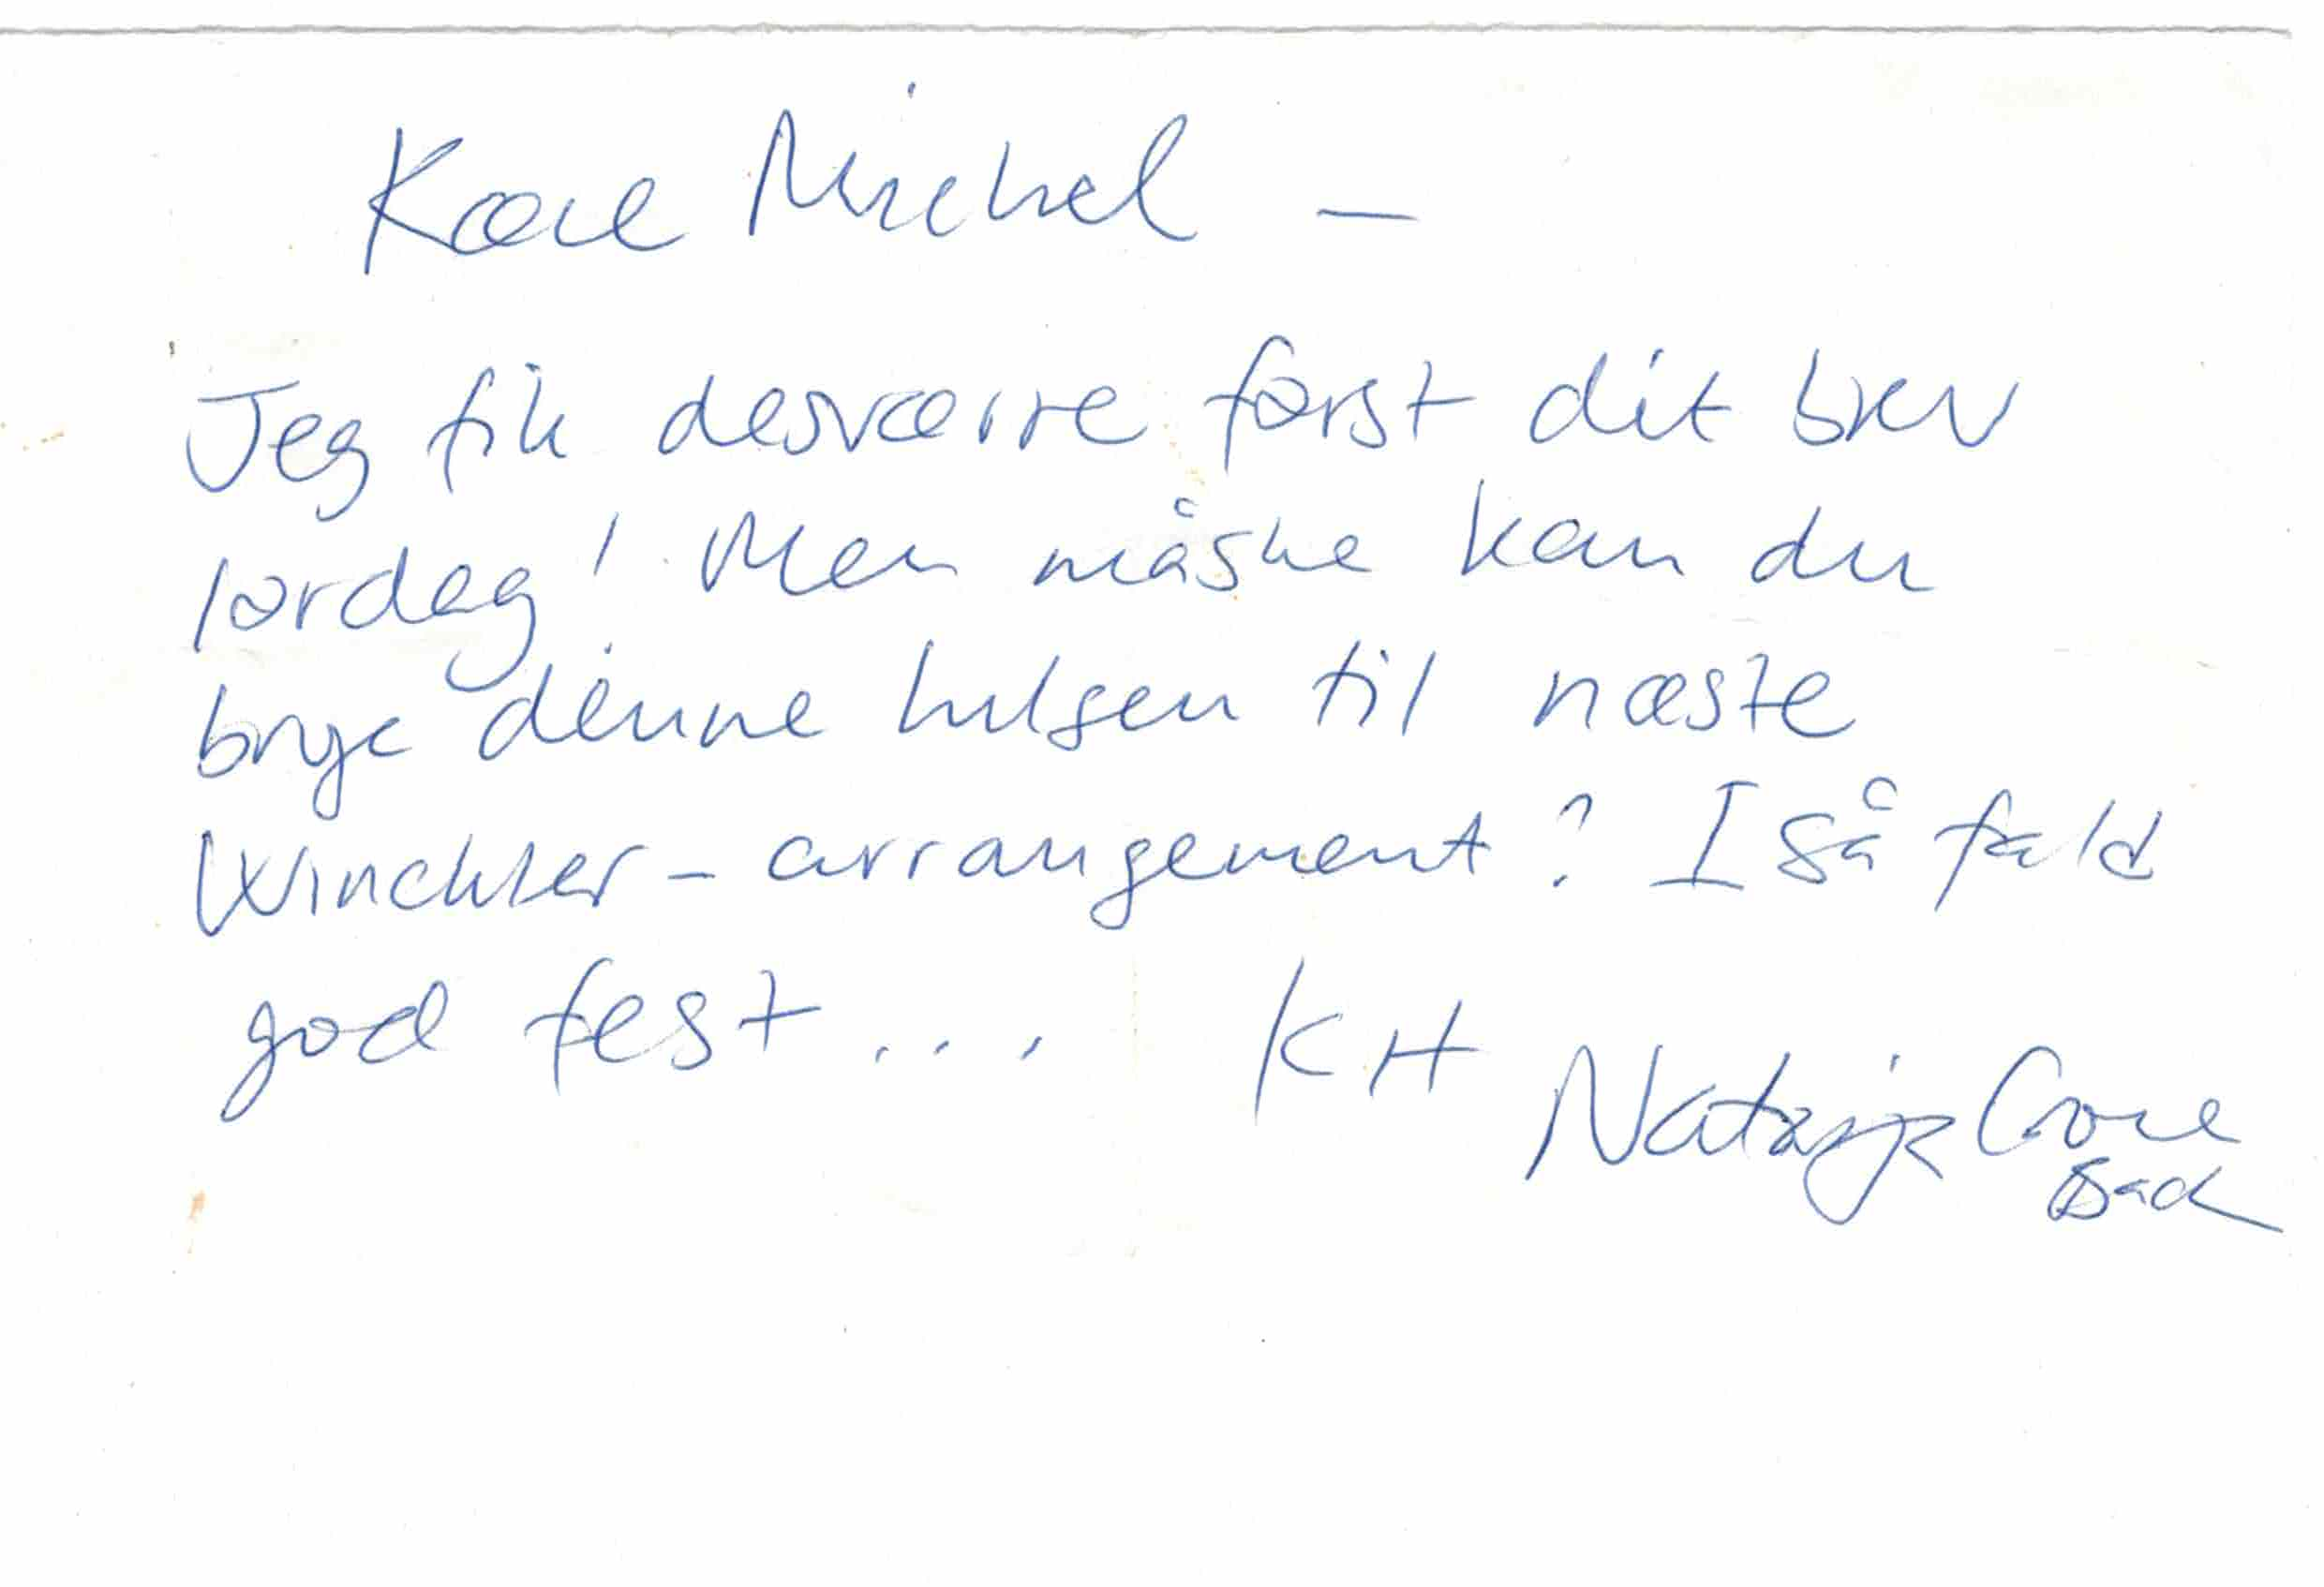 Kære Michel —
Jeg fik desværre først dit brev
lørdag! Men måske kan du
bruge denne hilsen til næste
arrangement? I så fald
god fest... KH
Natasja Crone
Back